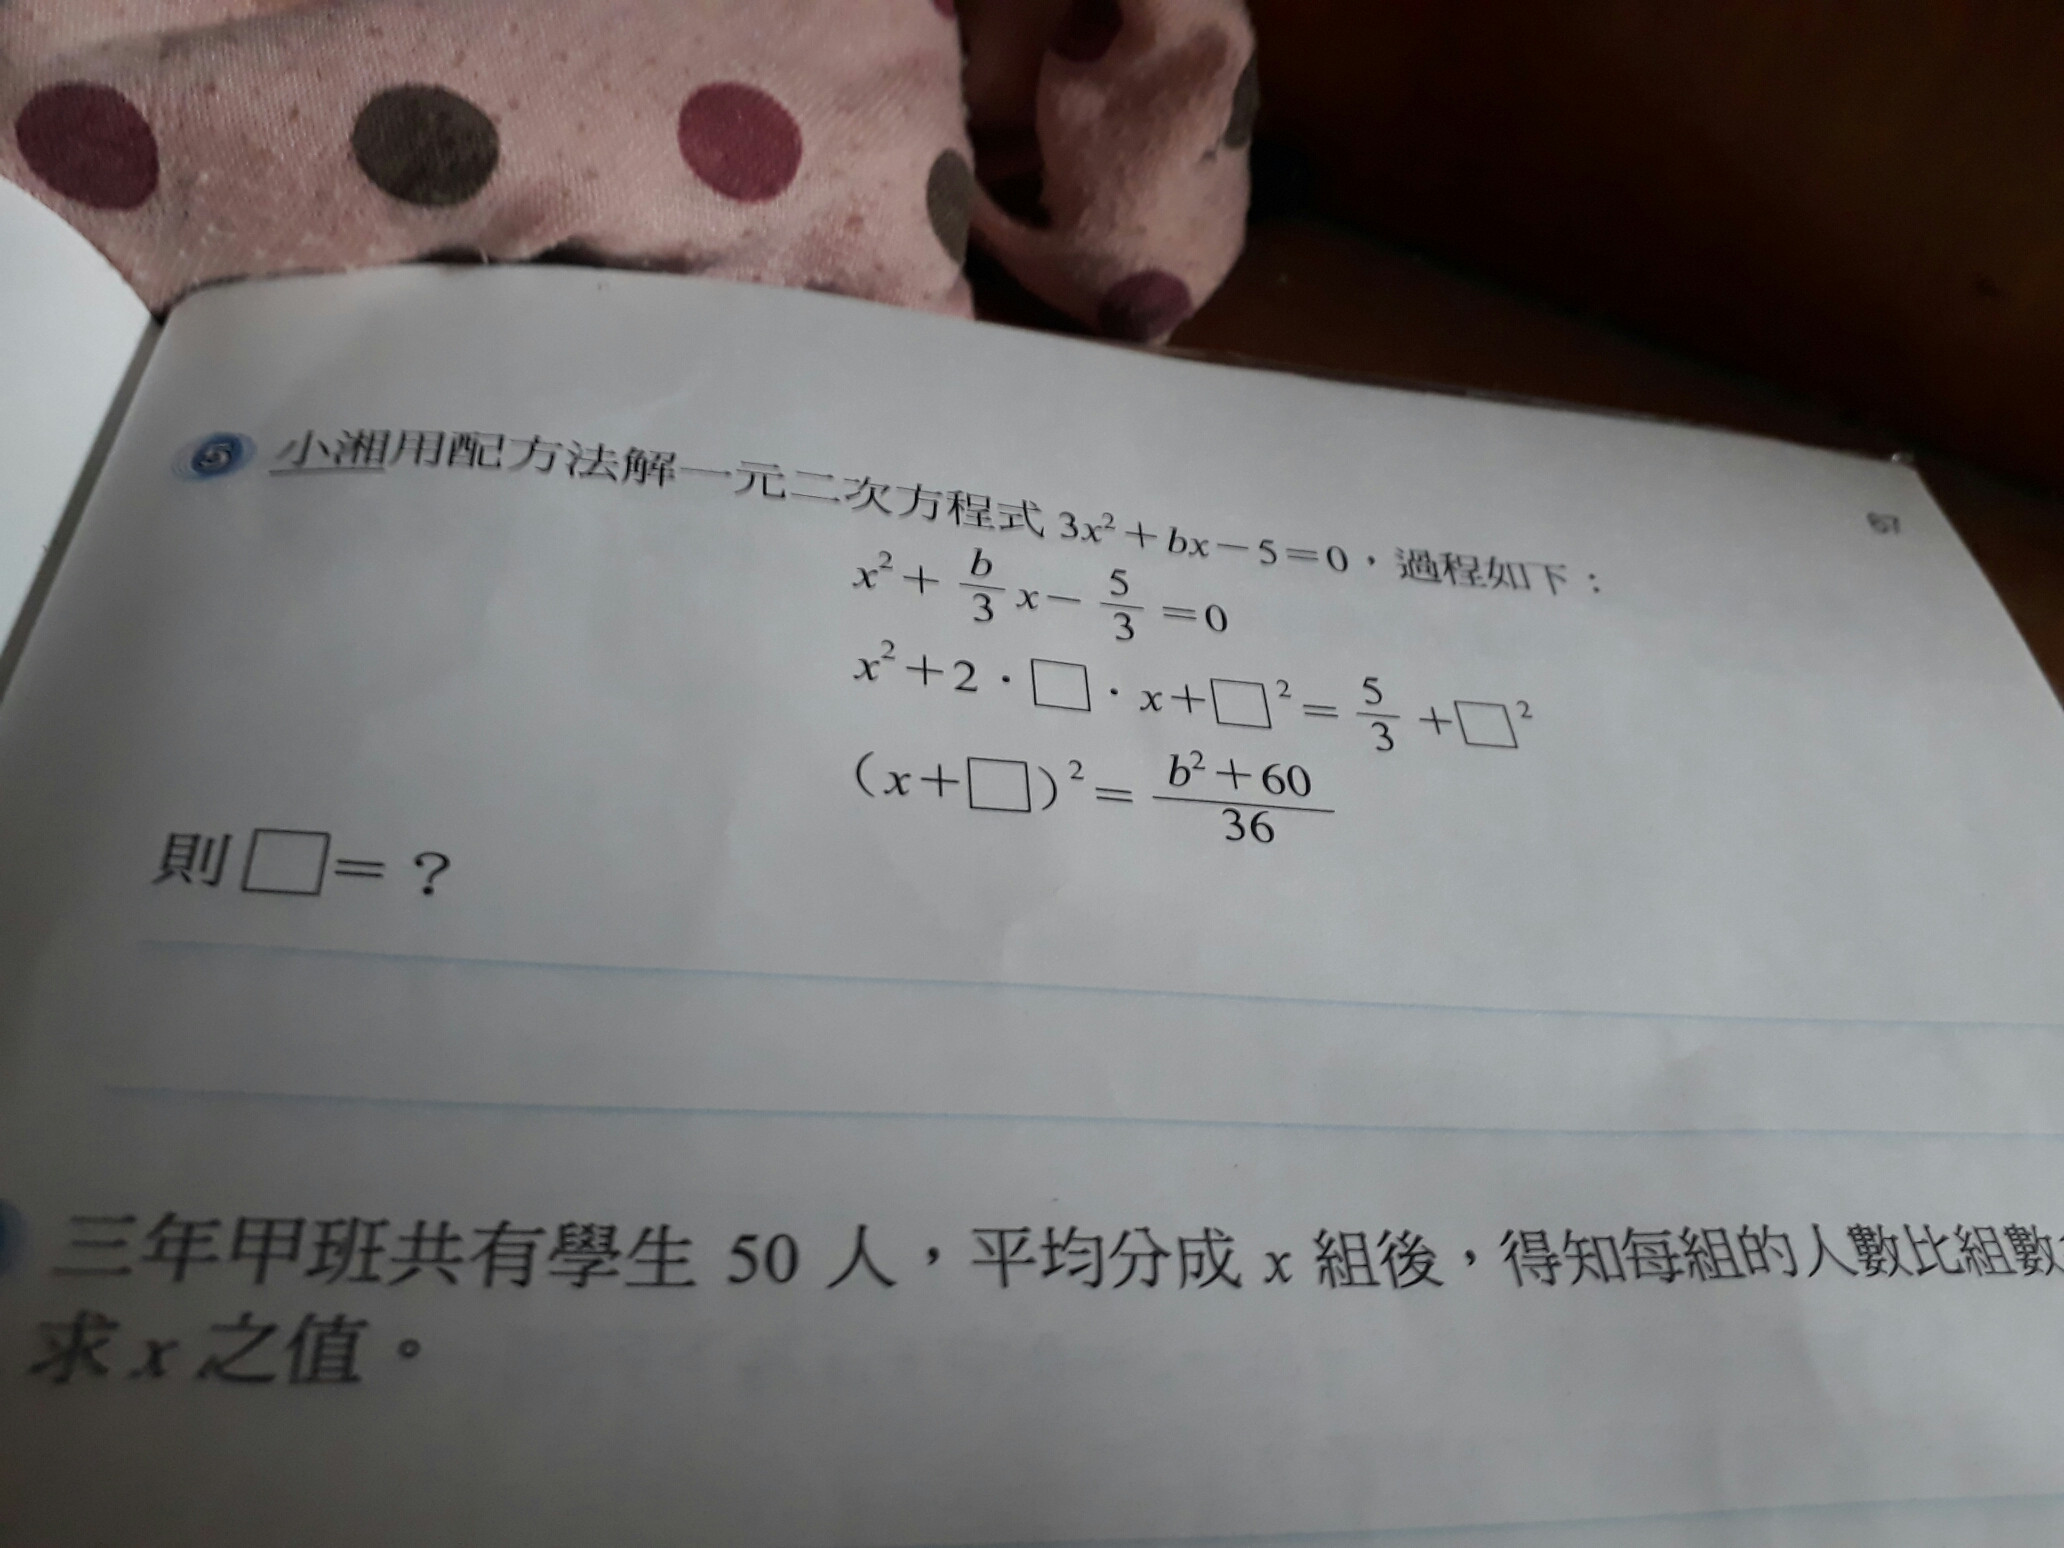 57
5 小湘用配方法解一元二次方程式 3x²+bx-5=0,過程如下:
x²+b/3 x-5/3=0
x²+2·□·x+□²=5/3+□²
(x+□)²=b²+60/36
則□=?
三年甲班共有學生 50 人,平均分成 x 組後,得知每組的人數比組數
求 x 之值。